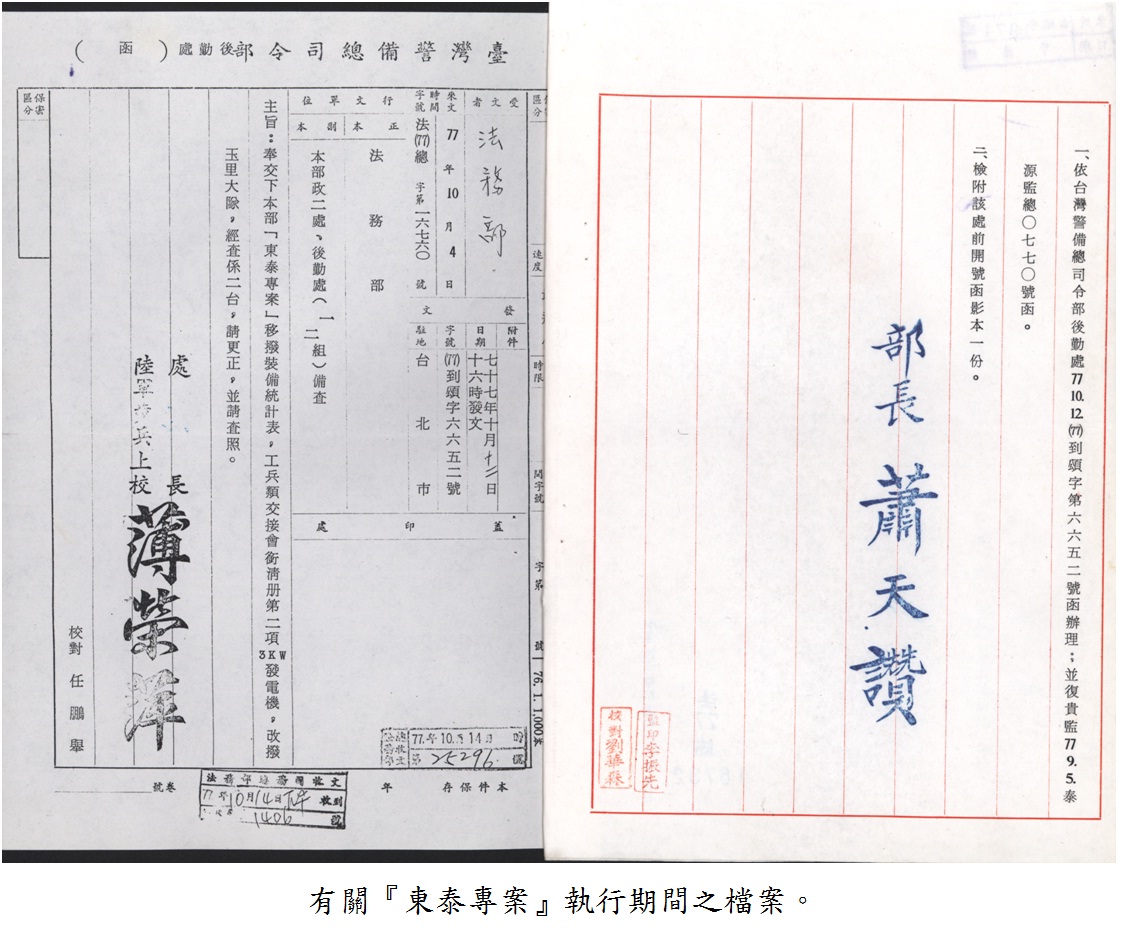 一、依台灣警備總司令部後勤處77.10.12.(77)到頌字第六六五二號函辦理；並復貴監77.9.5.泰
源監總〇七七〇號函。
二、檢附該處前開號函影本一份。
部長 蕭天讚
監印李振先
校對劉華森
臺灣警備總司令部後勤處（函）
保密區分
速度
時限
受文者
法務部
來文時間字號
77年10月4日
法(77)總字第一六七六〇號
行文單位
正本
副本
法務部
本部政二處、後勤處（一二組）備查
發文
附件
日期
七十七年十月十二日十六時發文
字號
(77)到頌字六六五二號
駐地
台北市
蓋印處
主旨：奉交下本部「東泰專案」移撥裝備統計表，工兵類交接會銜清册第二項3KW發電機，改撥
玉里大隊，經查係二台，請更正，並請查照。
處長
陸軍 兵上校
薄榮輝
校對 任鵬舉
77.年10.月14日
第25296.號
77年10月14日
收到
1406號
本件保存 年
卷號
有關『東泰專案』執行期間之檔案。